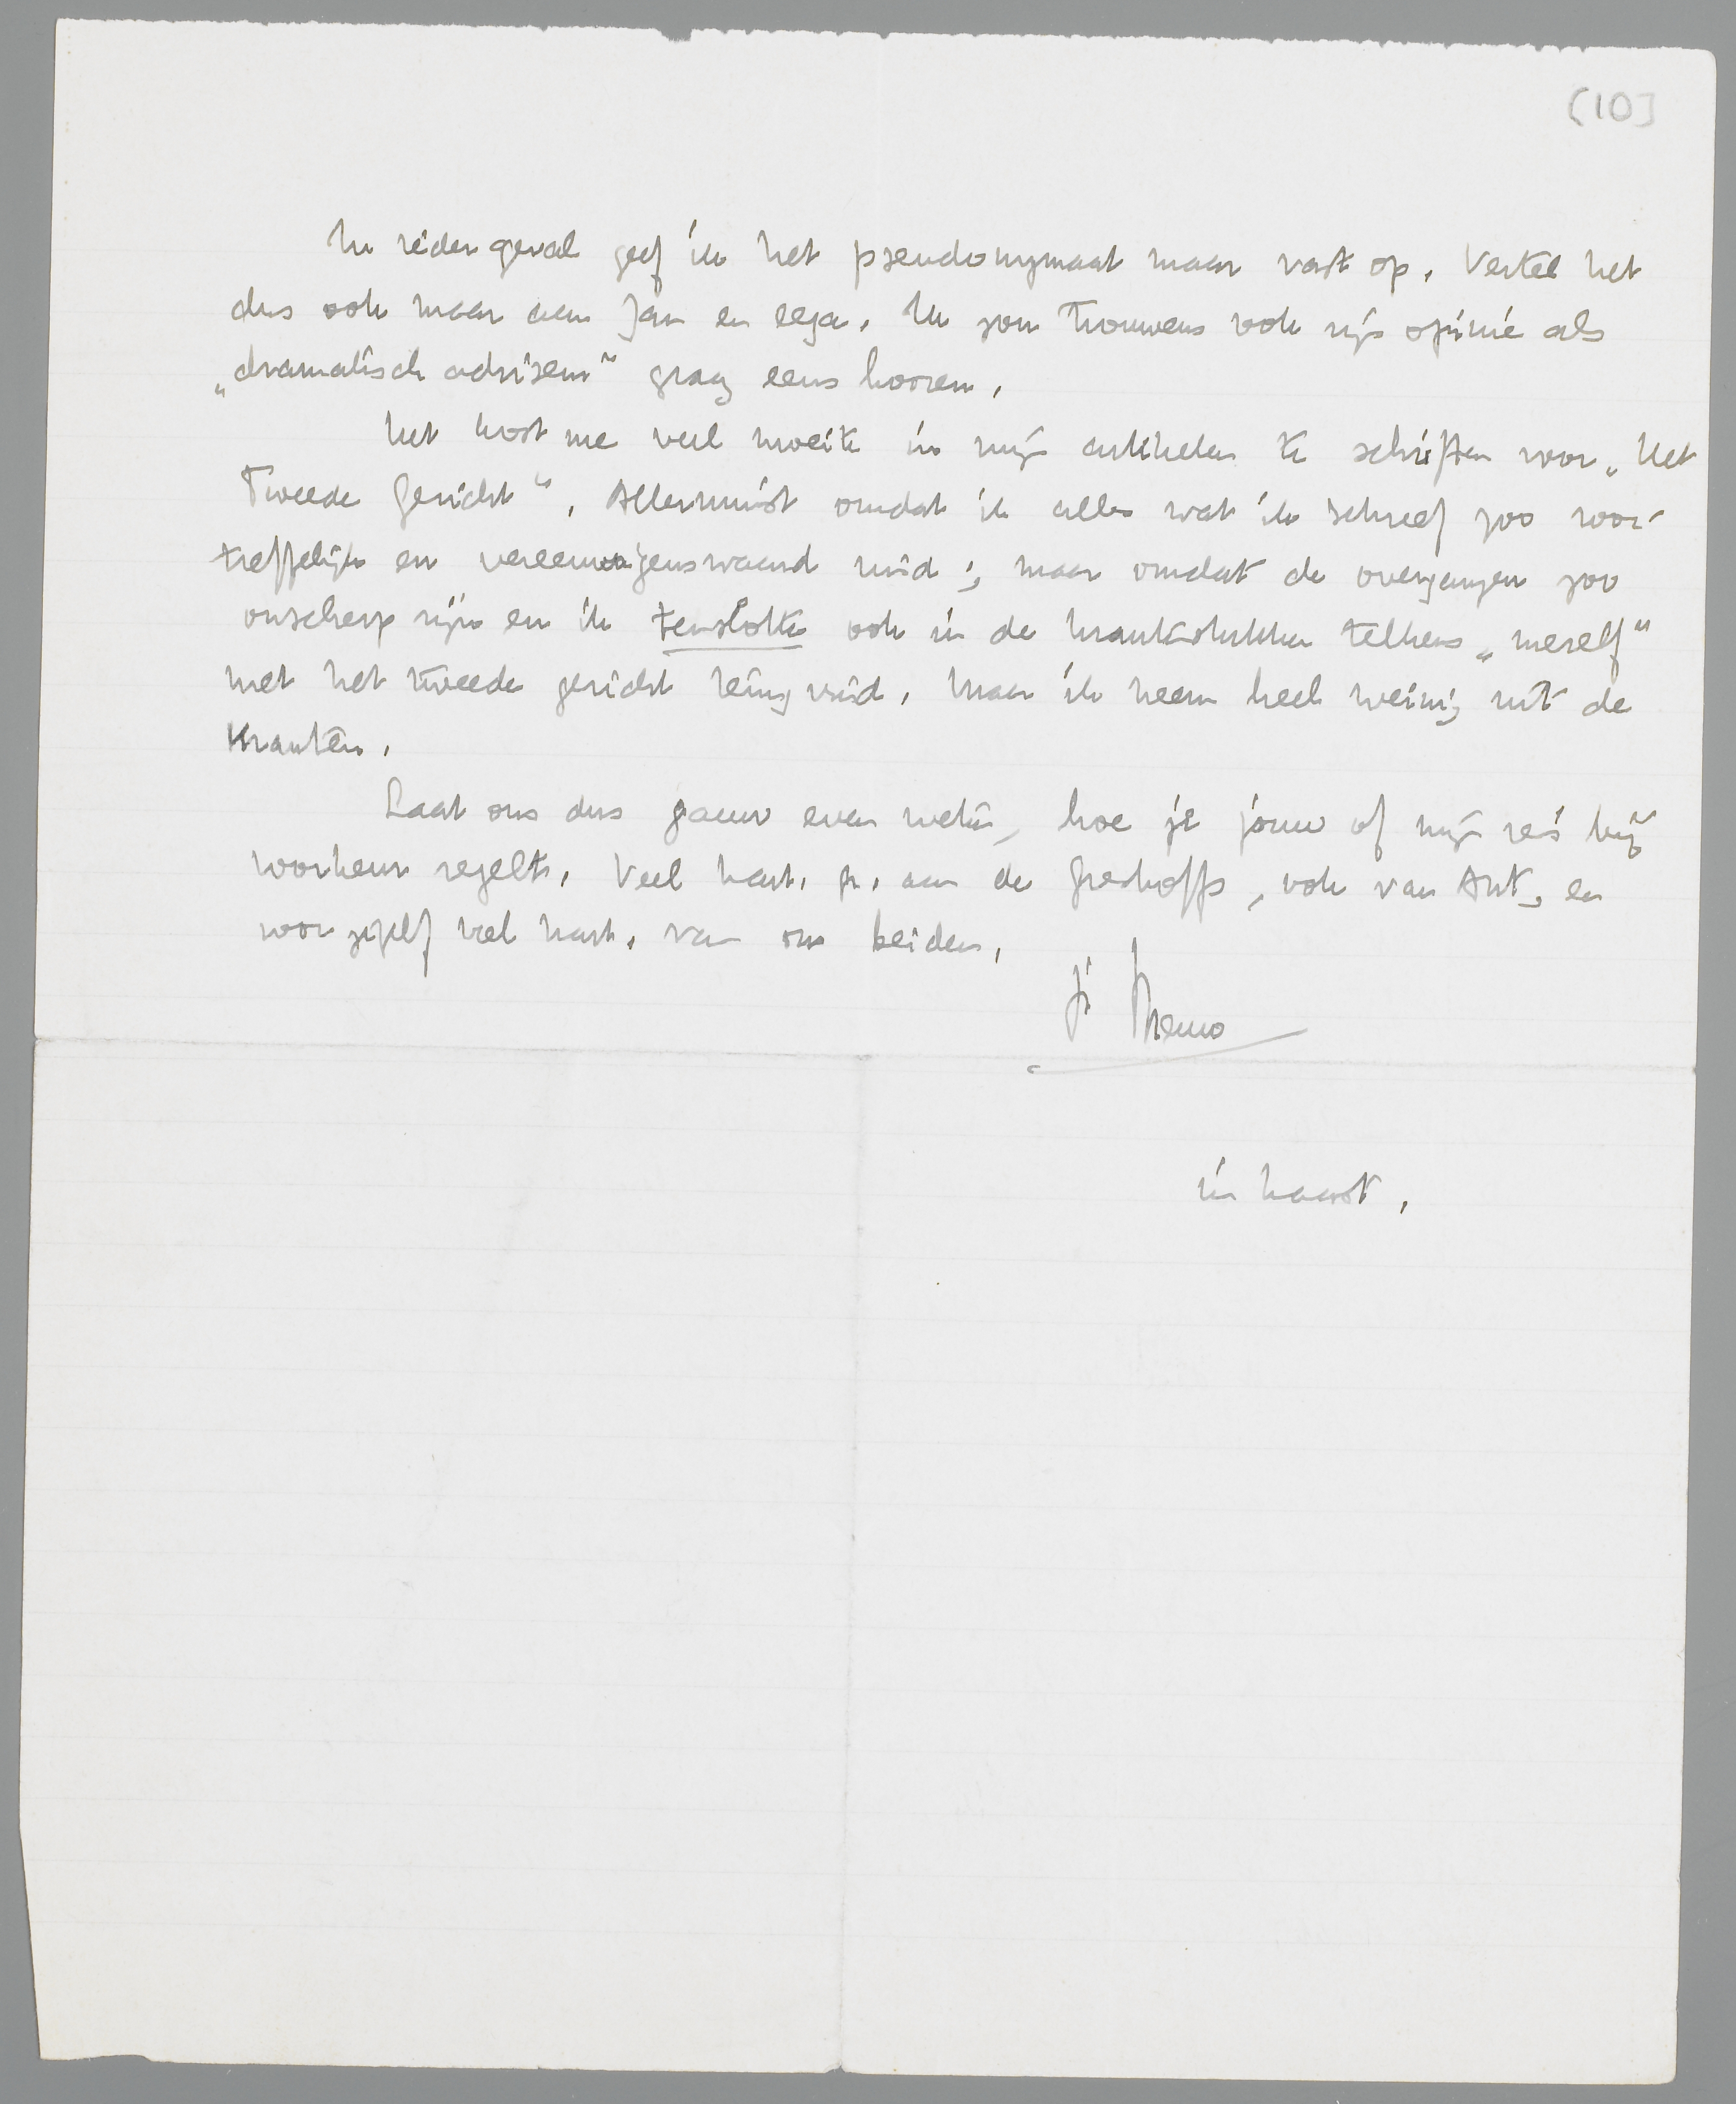 [10]
In ieder geval geef ik het pseudonymaat maar vast op. Vertel het
dus ook maar aan Jan en ega. Ik zou trouwens ook zijn opinie als
„dramatisch adviseur" graag eens hooren.
Het kost me veel moeite in mijn artikelen te schiften voor „Het
Tweede Gezicht". Allerminst omdat ik alles wat ik schreef zoo voor-
treffelijk en vereeuwigenswaard vind; maar omdat de overgangen zoo
onscherp zijn en ik tenslotte ook in de krantenstukken telkens „mezelf"
met het tweede gezicht terug vind. Maar ik neem heel weinig uit de
kranten.
Laat ons dus gauw even weten, hoe je jouw of mijn reis bij
voorkeur regelt. Veel hart. gr. aan de Greshoffs, ook van Ant, en
voor jezelf veel hart. van ons beiden,
je Menno
in haast.